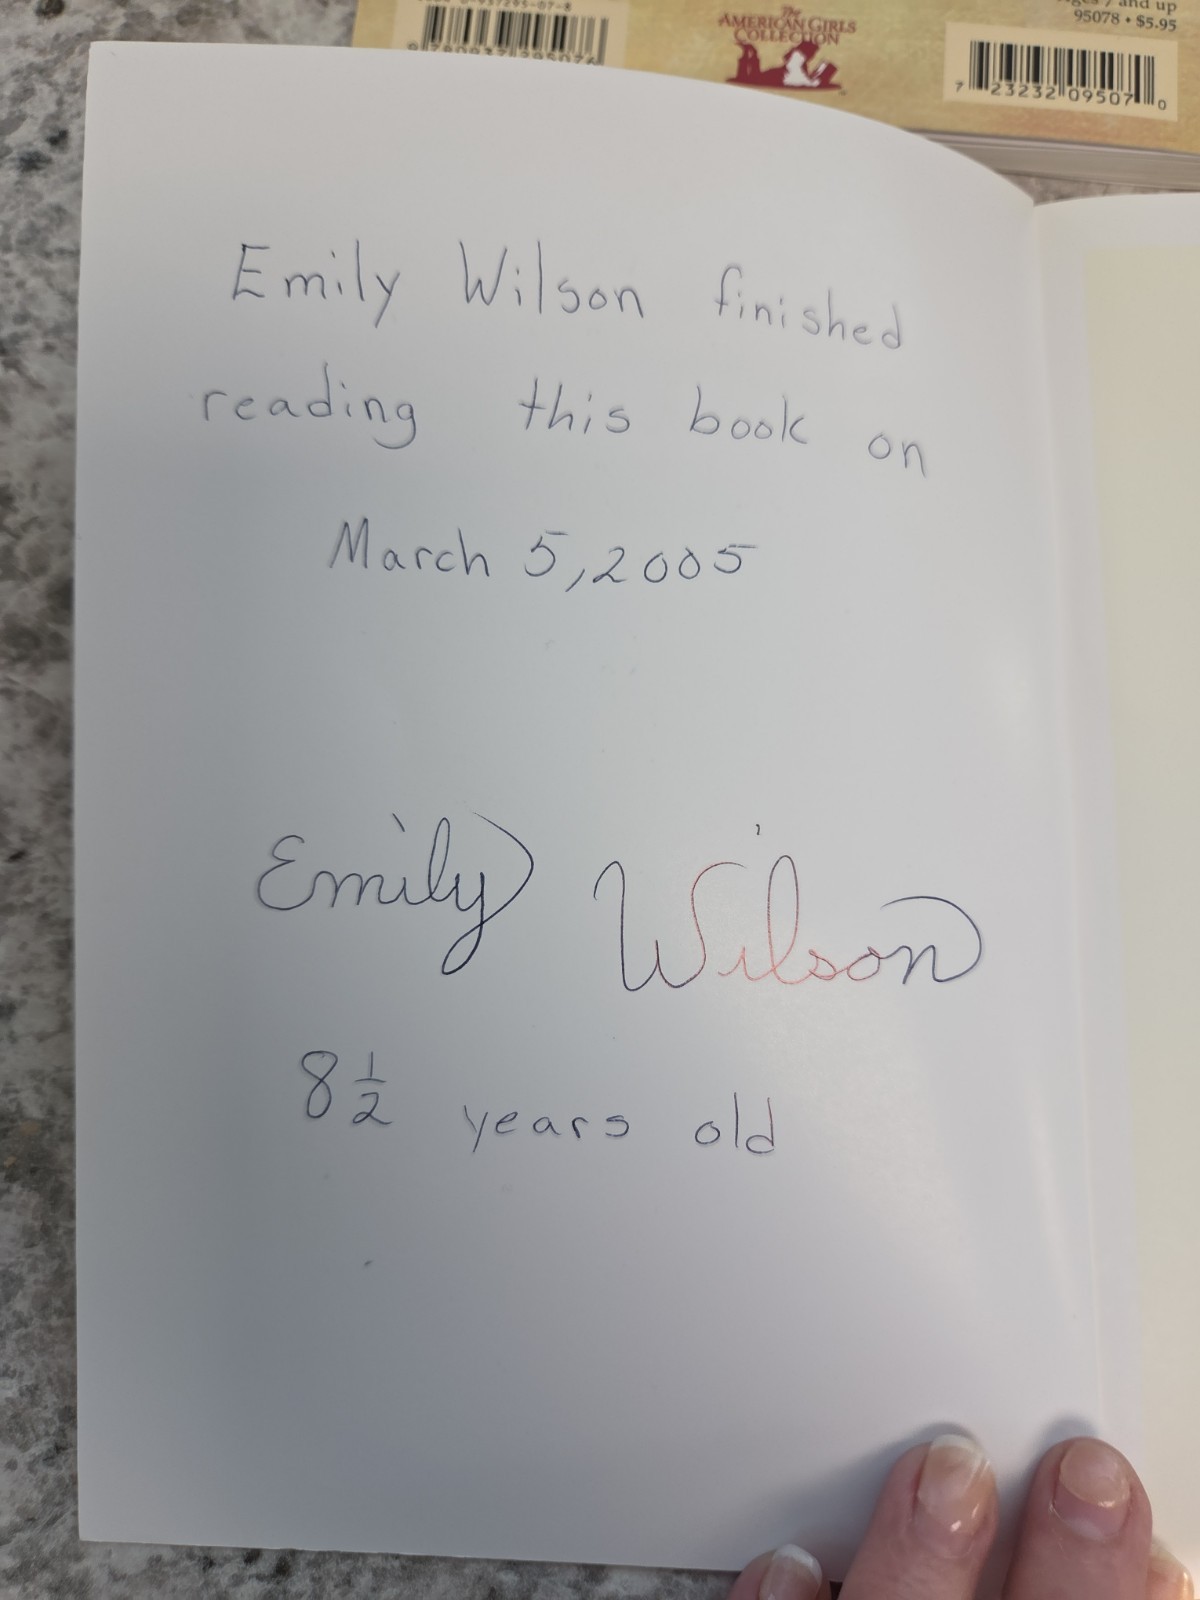 0-937295-07-8
9 780937 295076
The
AMERICAN GIRLS
COLLECTION
7 and up
95078 • $5.95
7 23232 09507 0
Emily Wilson finished
reading this book on
March 5, 2005
Emily Wilson
8 1/2 years old